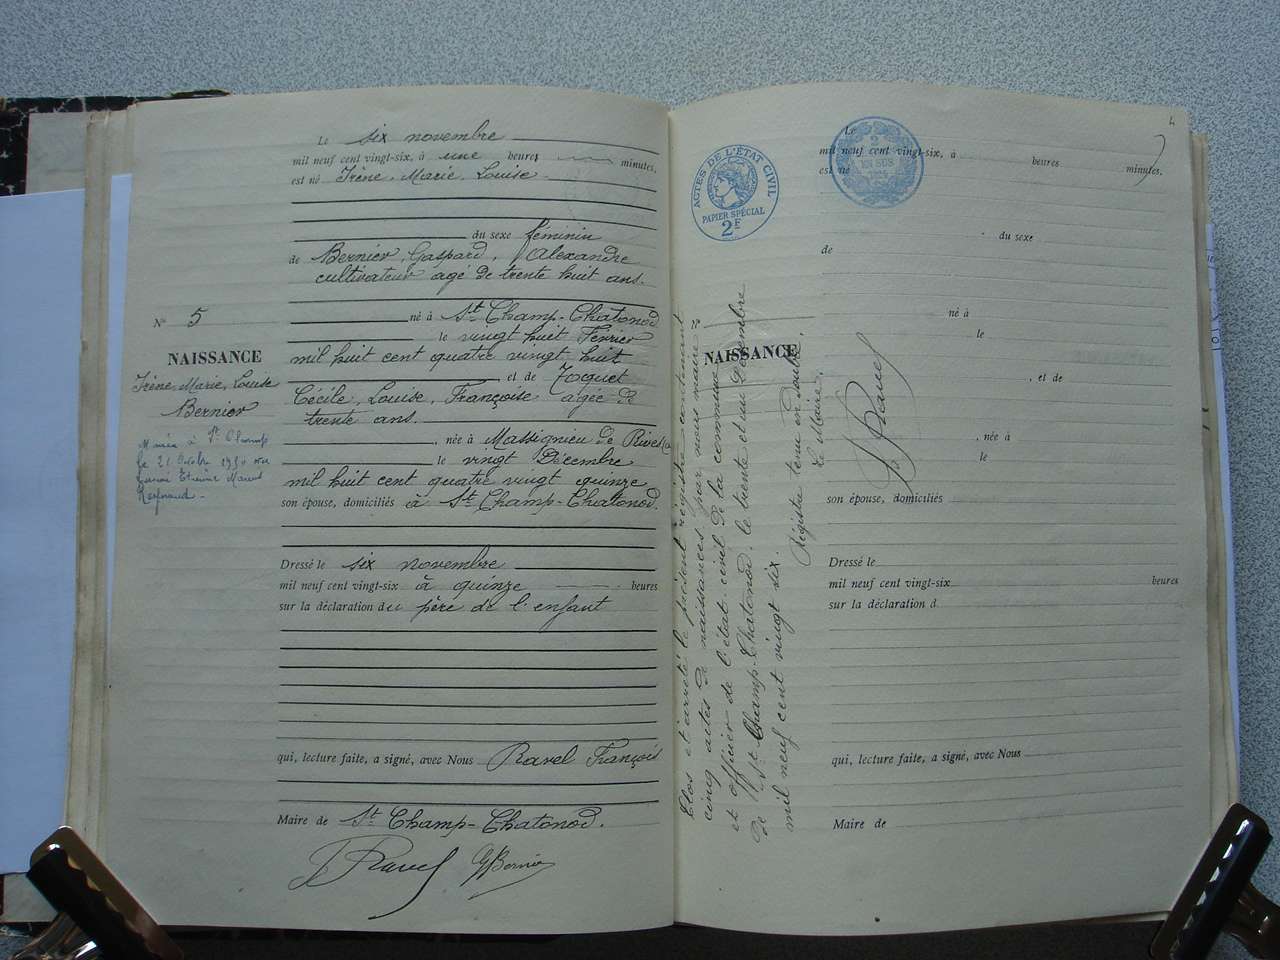 Le six novembre
mil neuf cent vingt-six, à une heures minutes,
est né Irène, Marie, Louise
du sexe féminin
de Bernier, Gaspard, Alexandre
cultivateur agé de trente huit ans.
né à St Champ-Chatonod
le vingt huit Février
mil huit cent quatre vingt huit
et de Jocquet
Cécile, Louise, Françoise agée de
trente ans.
, née à Massignieu de Rives
le vingt Décembre
mil huit cent quatre vingt quinze
son épouse, domiciliés à St Champ-Chatonod.
Dressé le six novembre
mil neuf cent vingt-six à quinze heures
sur la déclaration du père de l'enfant
qui, lecture faite, a signé, avec Nous Ravel François
Maire de St Champ-Chatonod.
F Ravel G Bernier
N° 5
NAISSANCE
Irène, Marie, Louise
Bernier
à St Champ
le 21 Octobre 1950
Etienne Marcel
4
ACTES DE L'ÉTAT CIVIL
PAPIER SPÉCIAL
2F
2
EN SUS
Le
mil neuf cent vingt-six, à heures minutes,
est né
du sexe
de
né à
le
N°
NAISSANCE
, et de
, née à
le
son épouse, domiciliés
Dressé le
mil neuf cent vingt-six heures
sur la déclaration d
qui, lecture faite, a signé, avec Nous
Maire de
Clos et arrêté le présent registre contenant
cinq actes de naissances par nous maire
et officier de l'état-civil de la commune
de St Champ-Chatonod, le trente et un Décembre
mil neuf cent vingt six.
Régistre tenu en double.
Le Maire,
F Ravel